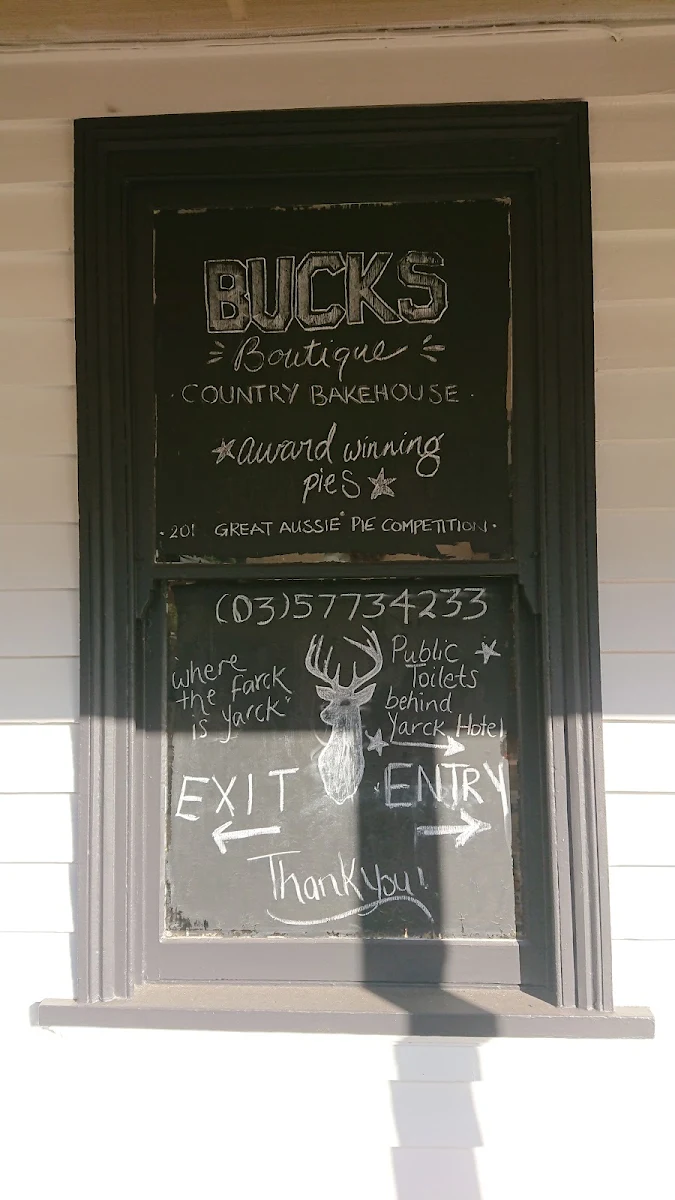 BUCKS
Boutique
· COUNTRY BAKEHOUSE ·
award winning
pies
· 201 GREAT AUSSIE PIE COMPETITION ·
(03)57734233
"where
the farck
is yarck"
Public
Toilets
behind
Yarck Hotel
EXIT
ENTRY
Thankyou!